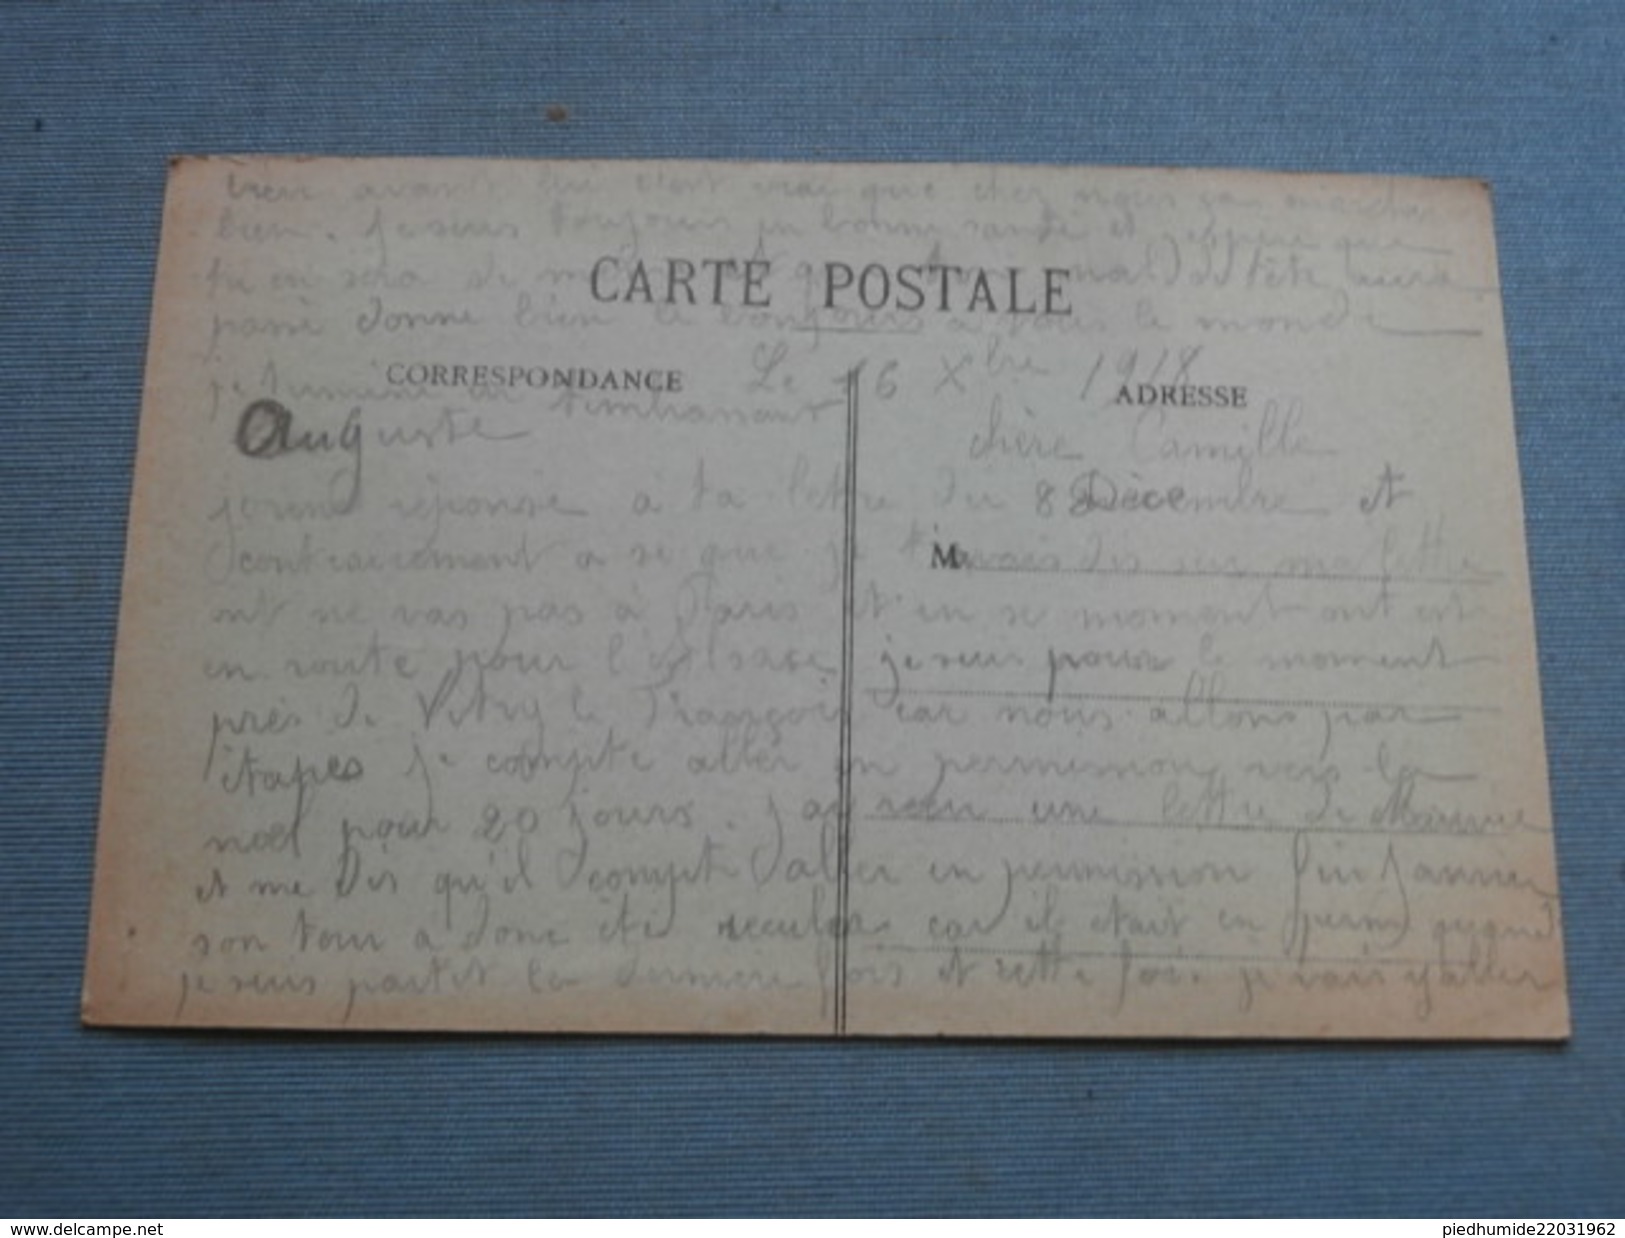 bien avant lui c'est vrai que chez nous ça marche
bien. je suis toujours en bonne santé et j'espère que
tu en sera de même que ton mal de tête aura
CARTE POSTALE
passé donne bien le bonjours à tous le monde
Le 16 Xbre 1918
CORRESPONDANCE
ADRESSE
je termine en t'embrassant
Auguste
chère Camille
réponse à ta lettre du 8 Décembre et
contrairement a se que je t'avais dis sur ma lettre
M
ont ne vas pas à Paris et en se moment ont est
en route pour l'Alsace je suis pour le moment
près de Vitry le François car nous allons par
étapes je compte aller en permission vers la
noël pour 20 jours. j'ai reçu une lettre de Maurice
et me dis qu'il compte aller en permission fin Janvier
son tour a donc été reculer car il était en perm quand
je suis partit la dernière fois et cette fois je vais y aller
www.delcampe.net
piedhumide22031962